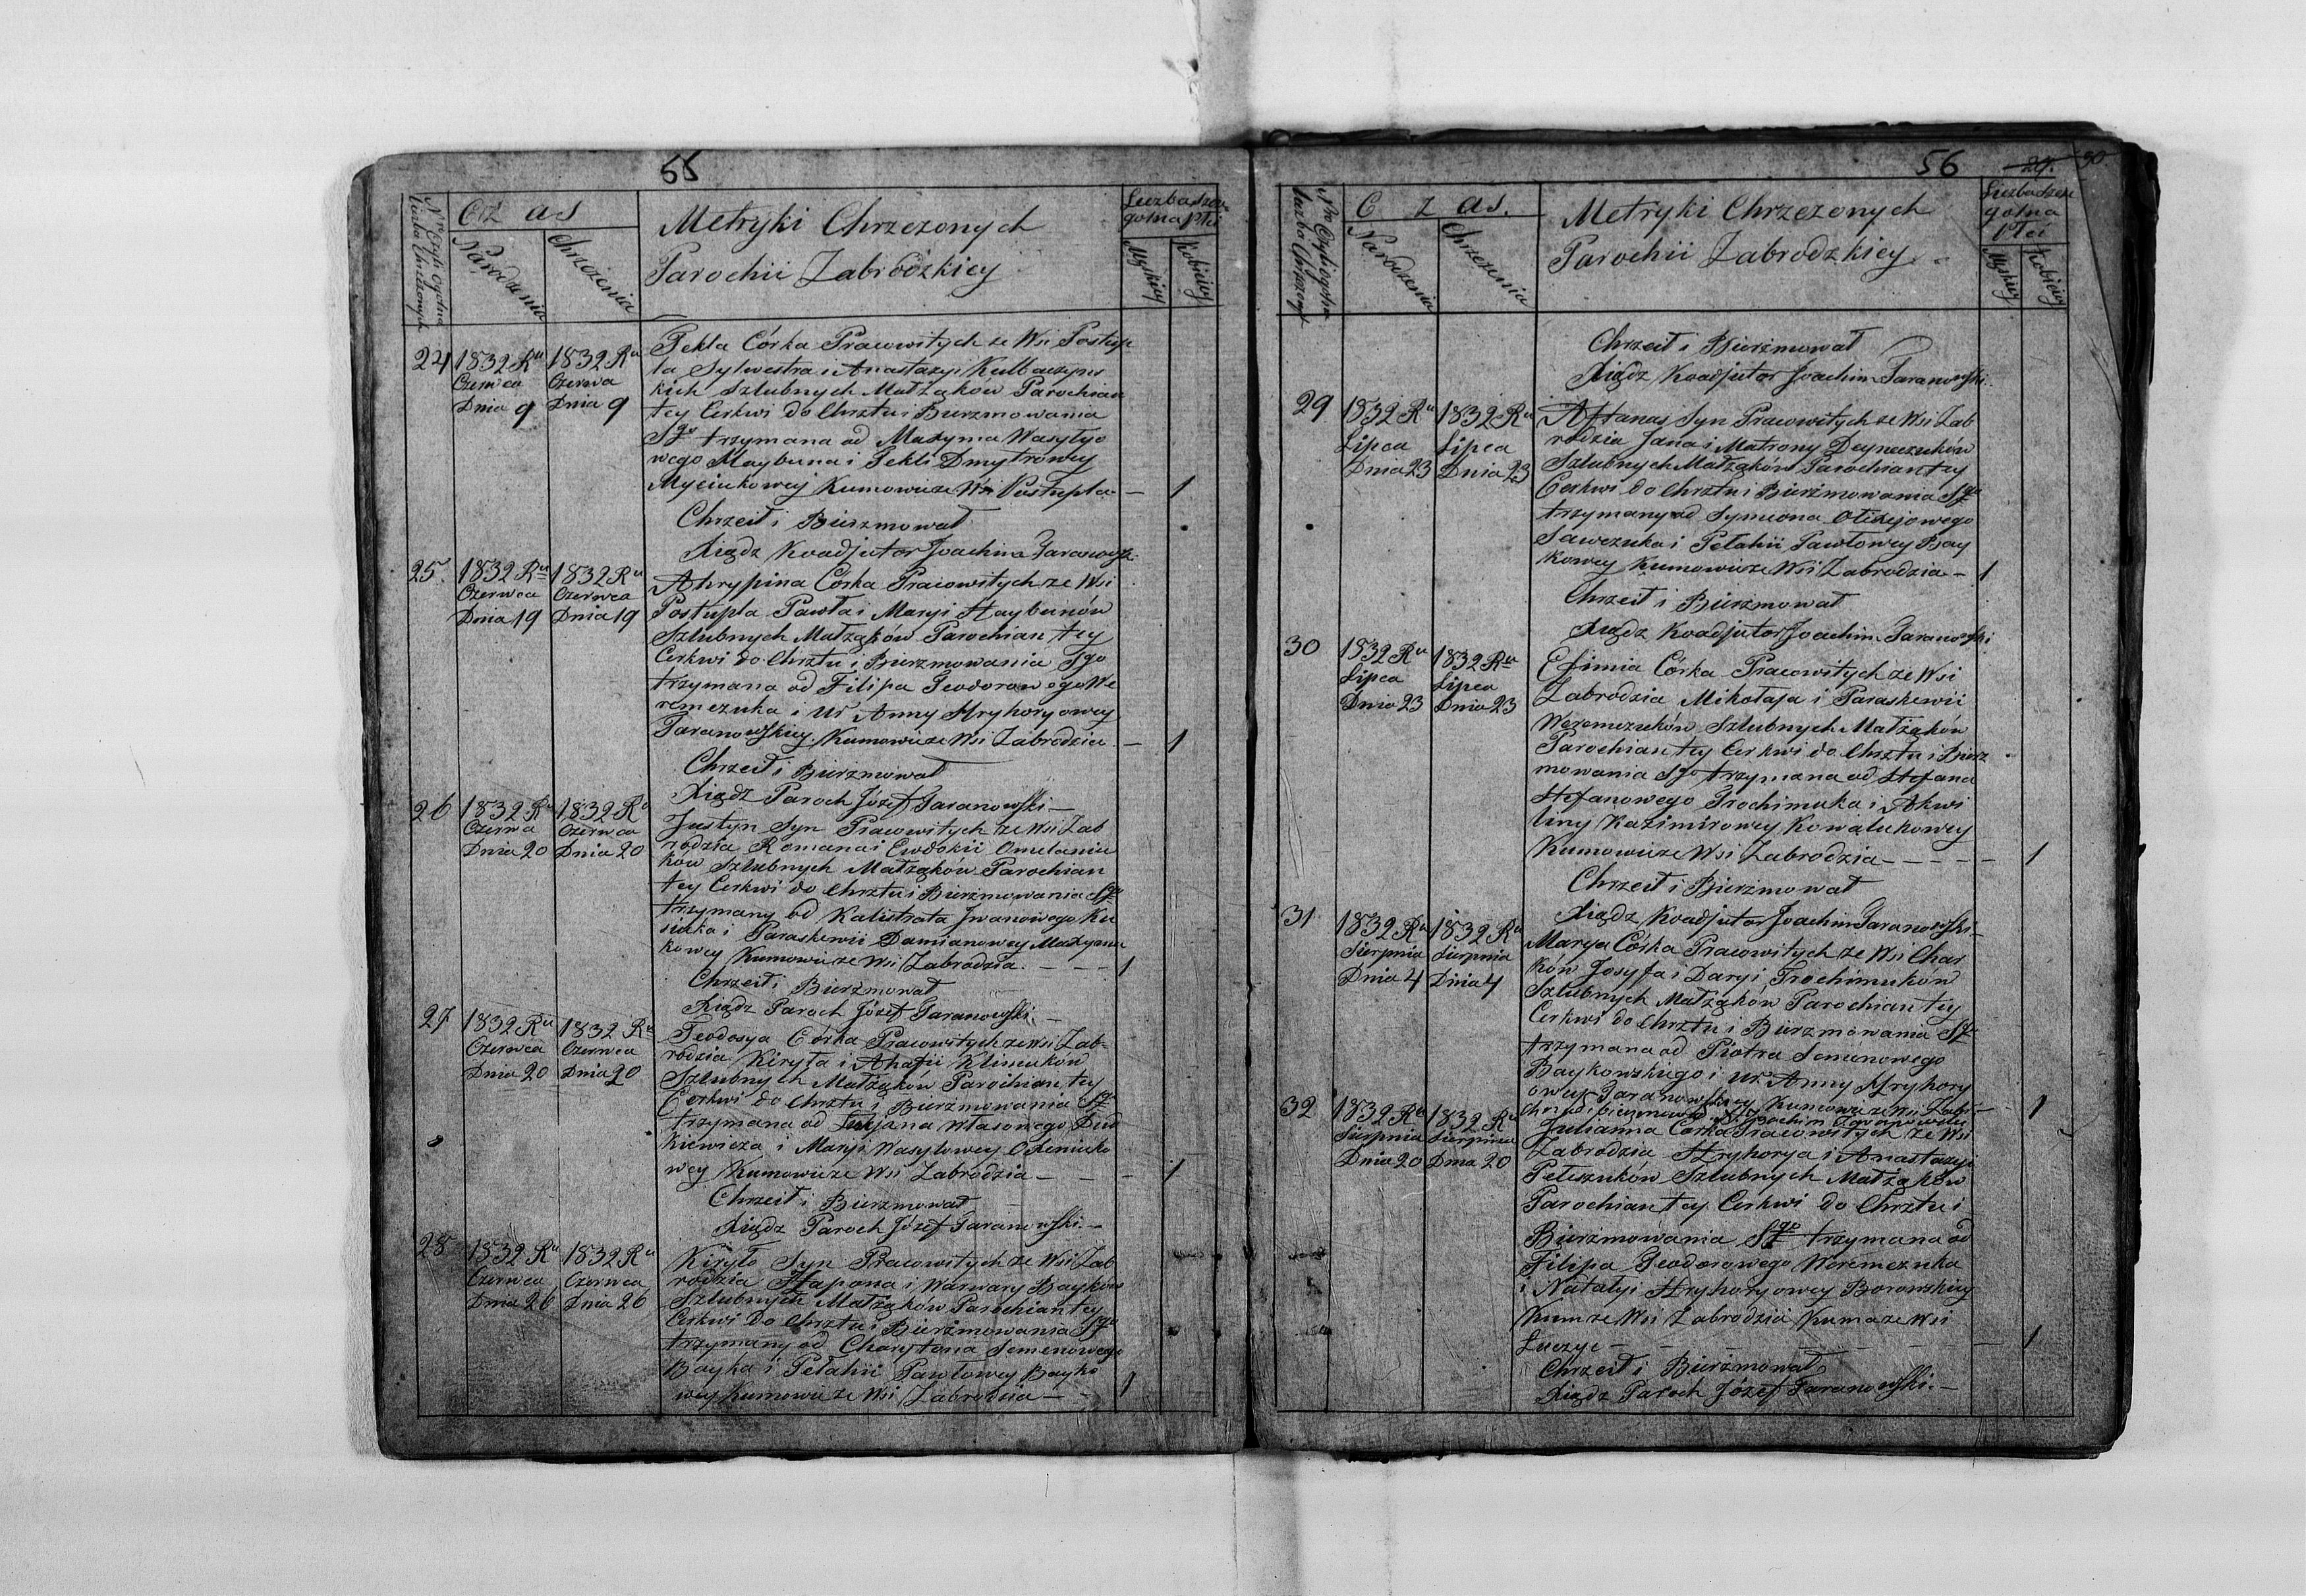 55
Nro Czyli Ogólna
liczba Chrzczonych
Czas
Narodzenia
Chrzczenia
Metryki Chrzczonych
Parochii Zabrodzkiey
Liczba Szcze-
gólna Płci
Męskiey
Kobiecey
24
1832 Ru
Czerwca
Dnia 9
1832 Ru
Czerwca
Dnia 9
Tekla Córka Pracowitych ze Wsi Postup
la Sylwestra i Anastazyi Kulbaczyńs
kich Szlubnych Małżąków Parochian
tey Cerkwi do Chrztu i Bierzmowania
Sgo trzymana od Maxyma Wasylyo
wego Maybuna i Tekli Dmytrowey
Myciukowey Kumowie ze Wsi Postupla — 1
Chrzcił i Bierzmował
Xiądz Koadjutor Joachim Taranowski
25.
1832 Ru
Czerwca
Dnia 19
1832 Ru
Czerwca
Dnia 19
Ahrypina Córka Pracowitych ze Wsi
Postupla Pawła i Maryi Haybunów
Szlubnych Małżąków Parochian tey
Cerkwi do Chrztu i Bierzmowania Sgo
trzymana od Filipa Teodorowego We
remczuka i Ur Anny Hryhoryowey
Taranowskiey Kumowie ze Wsi Zabrodzia. — 1
Chrzcił i Bierzmował
Xiądz Paroch Józef Taranowski —
26
1832 Ru
Czerwca
Dnia 20
1832 Ru
Czerwca
Dnia 20
Justyn Syn Pracowitych ze Wsi Zab
rodzia Romana i Ewdokii Omelaniu
ków Szlubnych Małżąków Parochian
tey Cerkwi do Chrztu i Bierzmowania Sgo
trzymany od Kalistrata Jwanowego Ku
siuka i Paraskewii Damianowey
kowey Kumowie ze Wsi Zabrodzia. — — — 1
Chrzcił i Bierzmował
Xiądz Paroch Józef Taranowski. —
27
1832 Ru
Czerwca
Dnia 20
1832 Ru
Czerwca
Dnia 20
Teodosya Córka Pracowitych ze Wsi Zab-
rodzia Kiryła i Ahafii Klimuków
Szlubnych Małżąków Parochian tey
Cerkwi do Chrztu i Bierzmowania Sgo
trzymana od Własowego Dud
kiewicza i Maryi Wasylowey Oxeniuko
wey Kumowie ze Wsi Zabrodzia — - - 1
Chrzcił i Bierzmował
Xiądz Paroch Józef Taranowski. —
28
1832 Ru
Czerwca
Dnia 26
1832 Ru
Czerwca
Dnia 26
Kiryło Syn Pracowitych ze Wsi Zab
rodzia Hapona i Warwary Bayków
Szlubnych Małżąków Parochian tey
Cerkwi do Chrztu i Bierzmowania Sgo
trzymany od Charytona Semenowego
Bayka i Pelahii Pawłowey Bayko
wey Kumowie ze Wsi Zabrodzia — - 1
56
29.
30
Nro Czyli ogólna
liczba Chrzczonych
Czas.
Narodzenia
Chrzczenia
Metryki Chrzczonych
Parochii Zabrodzkiey.
Liczba Szcze
gólna
Płci
Męskiey
Kobiecey
Chrzcił i Bierzmował
Xiądz Koadjutor Joachim Taranowski.
29
1832 Ru
Lipca
Dnia 23
1832 Ru
Lipca
Dnia 23
Aftanas Syn Pracowitych ze Wsi Zab
rodzia Jana i Matrony Deyneczuków
Szlubnych Małżąków Parochian tey
Cerkwi do Chrztu i Bierzmowania Sgo
trzymany od Symeona Olexyjowego
Sawczuka i Pelahii Pawłowey Bay
kowey Kumowie ze Wsi Zabrodzia — 1
Chrzcił i Bierzmował
Xiądz Koadjutor Joachim Taranowski
30
1832 Ru
Lipca
Dnia 23
1832 Ru
Lipca
Dnia 23
Efimia Córka Pracowitych ze Wsi
Zabrodzia Mikołaja i Paraskewii
Weremczuków Szlubnych Małżąków
Parochian tey Cerkwi do Chrztu i Bierz
mowania Sgo trzymana od Stefana
Stefanowego Trochimuka i Akwi
liny Kazimirowey Kowalukowey
Kumowie ze Wsi Zabrodzia — — — — — 1
Chrzcił i Bierzmował
Xiądz Koadjutor Joachim Taranowski —
31
1832 Ru
Sierpnia
Dnia 4
1832 Ru
Sierpnia
Dnia 4
Marya Córka Pracowitych ze Wsi Char
ków Josyfa i Daryi Trochimuków
Szlubnych Małżąków Parochian tey
Cerkwi do Chrztu i Bierzmowania Sgo
trzymana od Piotra Semenowego
Baykowskiego i Ur. Anny Hryhory
owey Taranowskiey Kumowie ze Wsi Zab: — 1
chrzcił i bierzmował X. Joachim Taranowski
32
1832 Ru
Sierpnia
Dnia 20
1832 Ru
Sierpnia
Dnia 20
Julianna Córka Pracowitych ze Wsi
Zabrodzia Hryhorya i Anastazyi
Peleszuków Szlubnych Małżąków
Parochian tey Cerkwi do Chrztu i
Bierzmowania Sgo trzymana od
Filipa Teodorowego Weremczuka
i Natalyi Hryhoryowey Borowskiey
Kum ze Wsi Zabrodzia Kuma ze Wsi
Łuczyc — — — — — — 1
Chrzcił i Bierzmował
Xiądz Paroch Józef Taranowski. —